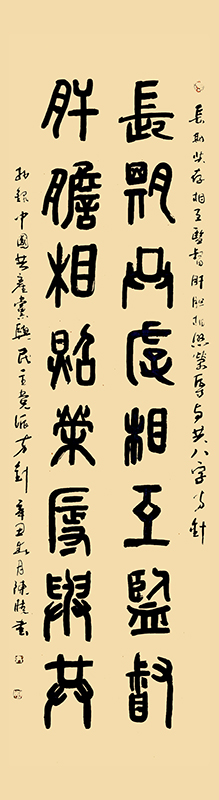 長期共存相互監督肝胆相照榮辱与共八字方針
長期共存相互監督
肝膽相照榮辱與共
中國共產黨與民主党派方針辛丑月陳書